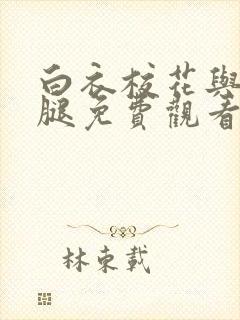 白衣校花與
腿免費觀看
林東載